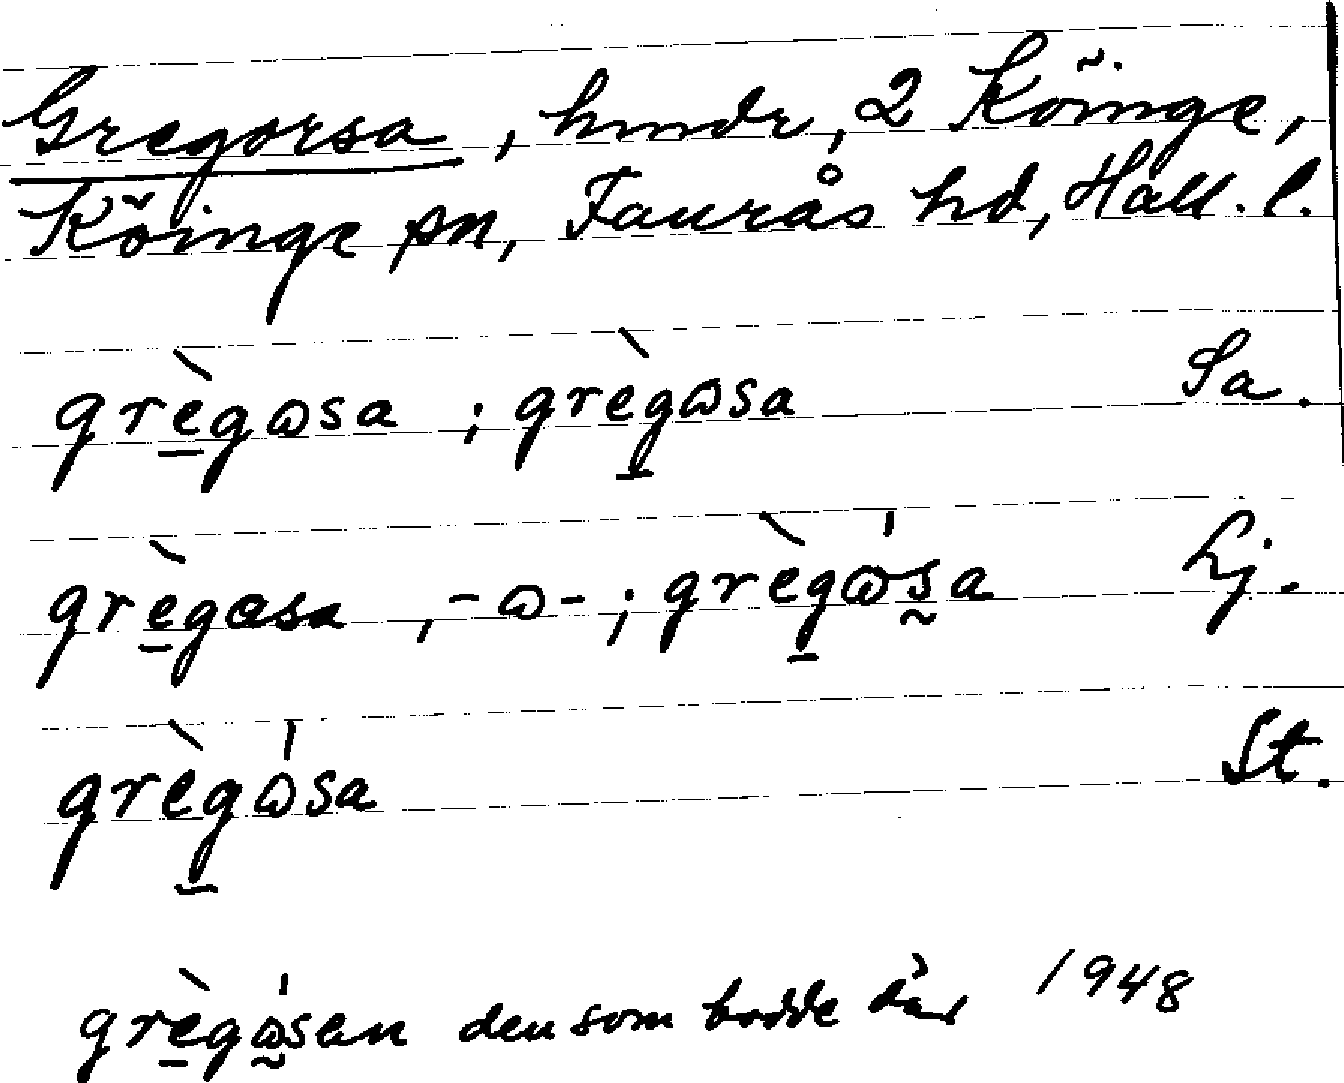 Gregorsa, hmdr, 2 Köinge,
Köinge sn, Faurås hd, Hall. l.
grègɷsa ; grègɷsa Sa.
grègɑsa , -ɷ- ; grègɷsa Lj.
grègɷsa St.
grègɷsan den som bodde där 1948